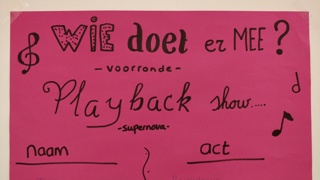 WIE doet er MEE?
- voorronde -
Playback show....
-supernova-
naam act